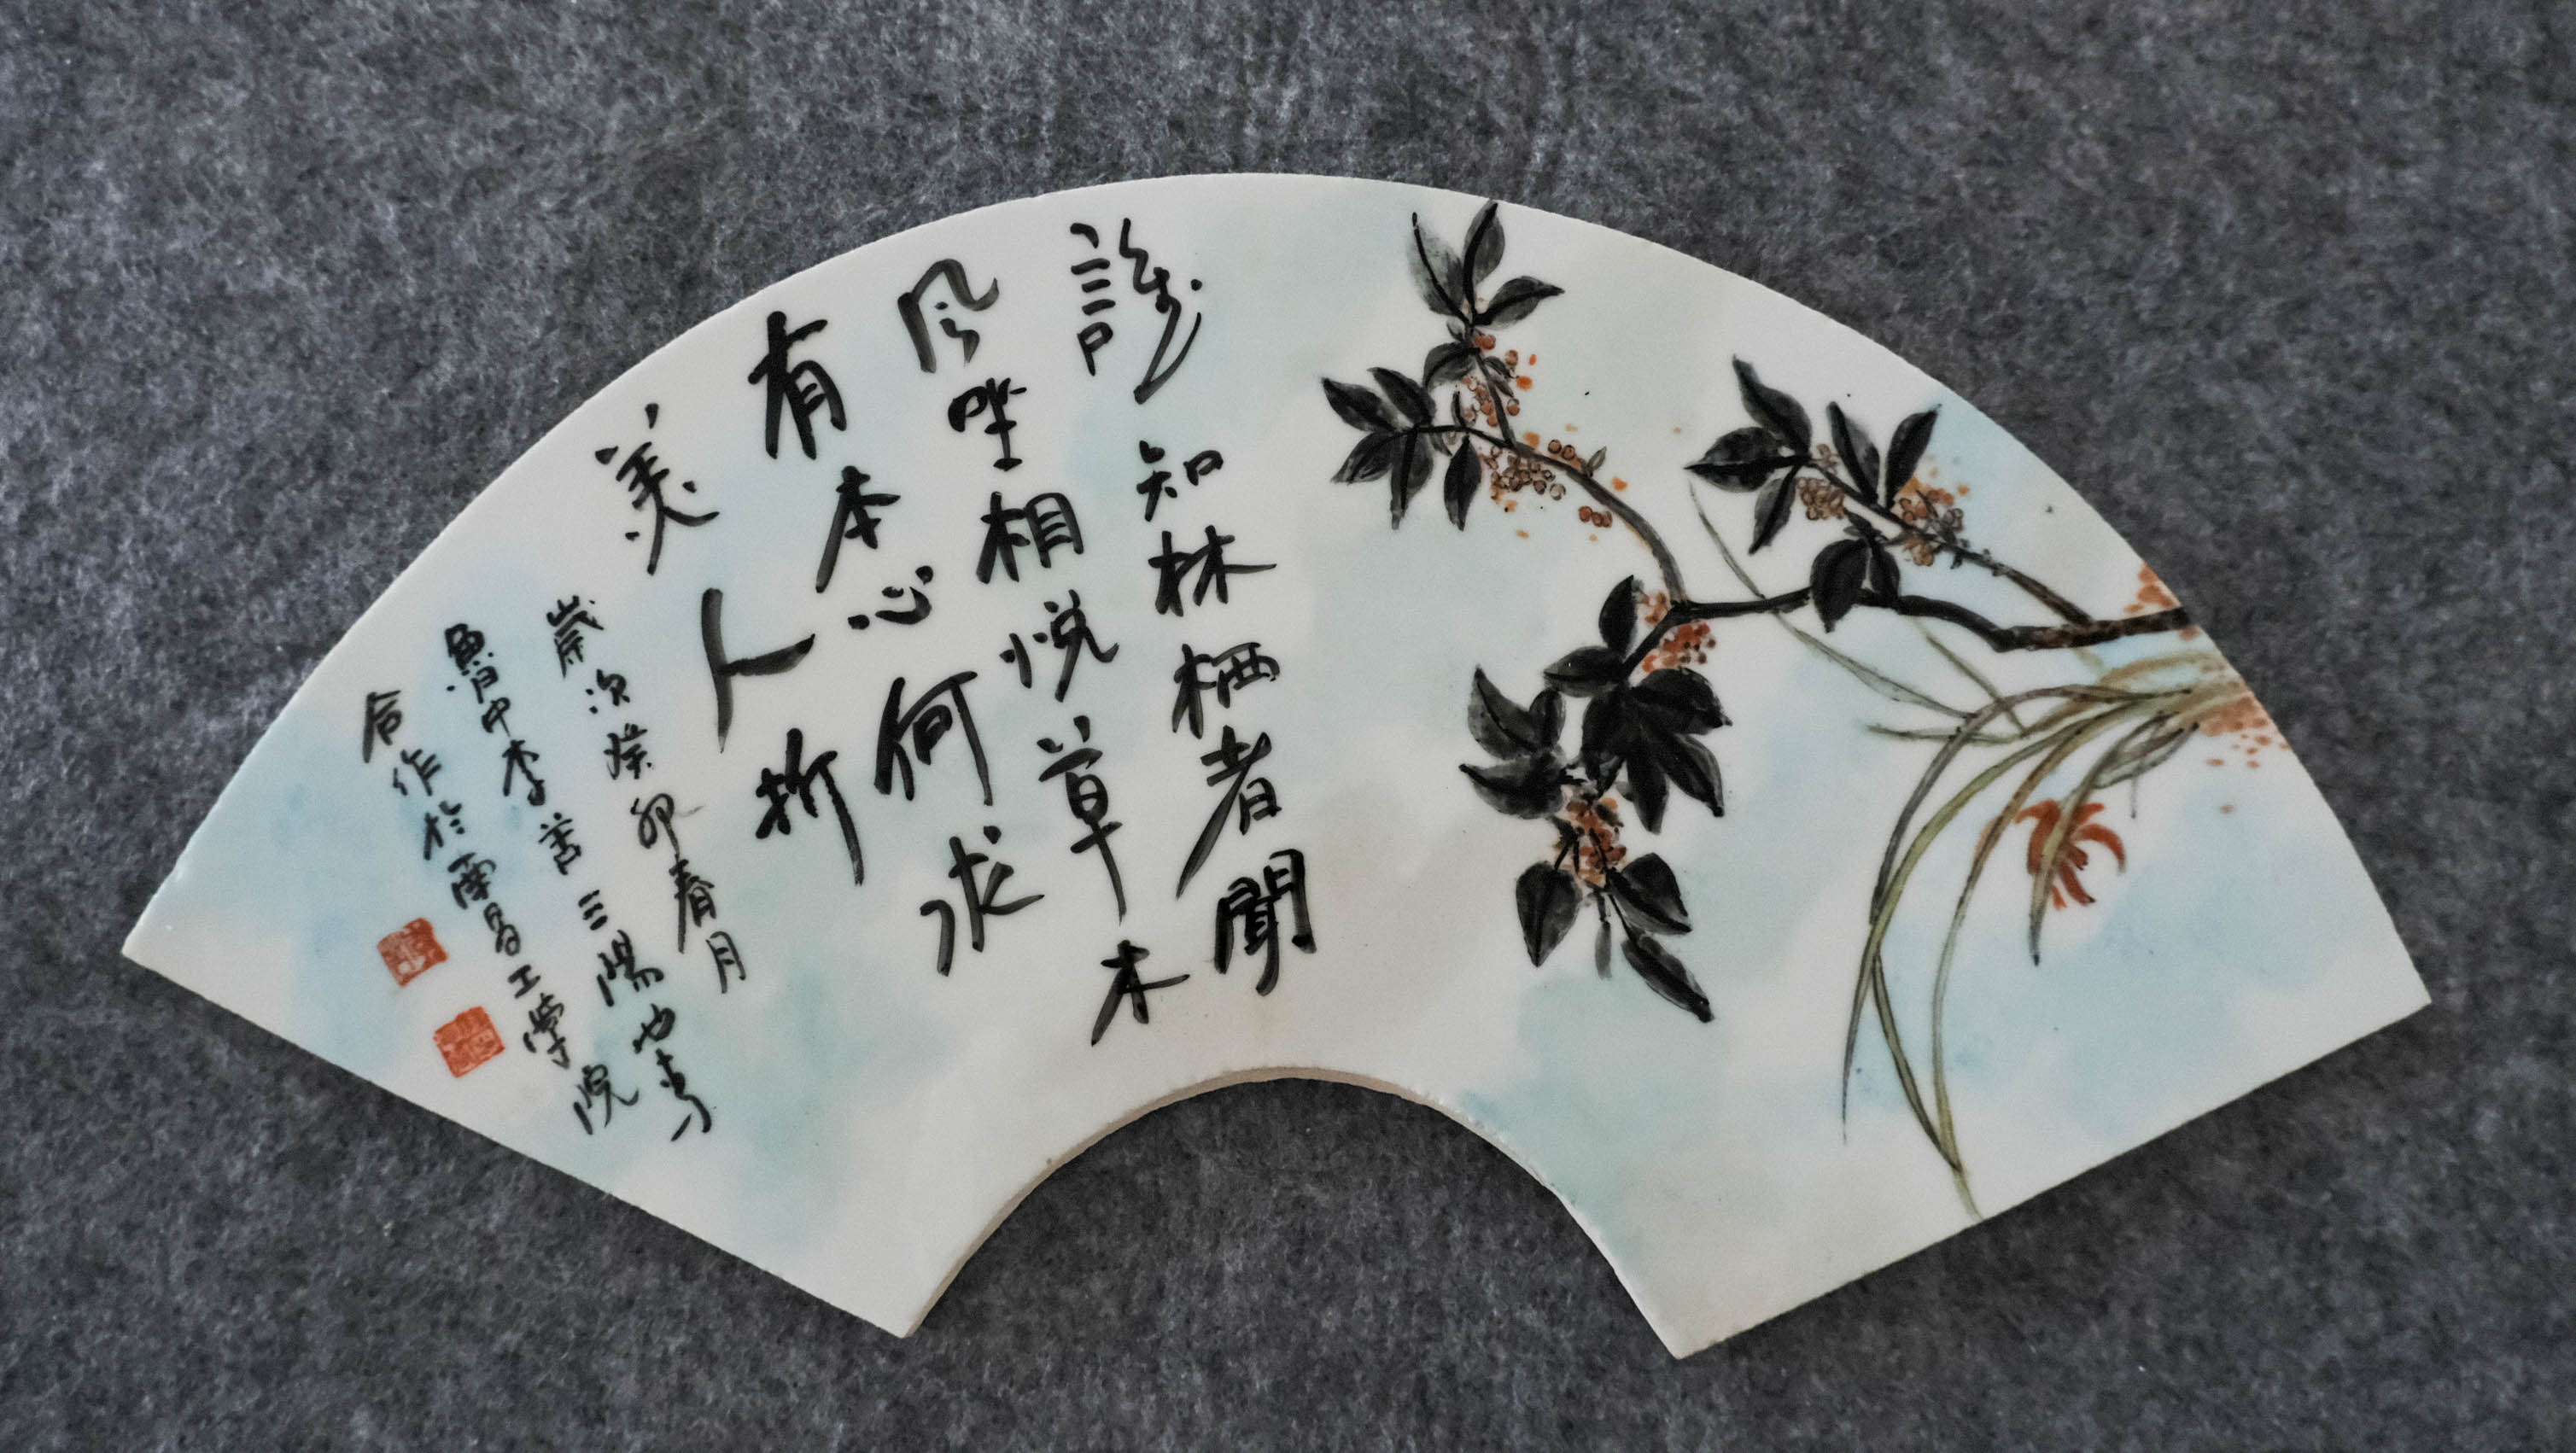 誰知林栖者聞
风坐相悦草木
有本心何求
美人折
歲次癸卯春月
魯中李善三陽也青
合作於南昌工學院